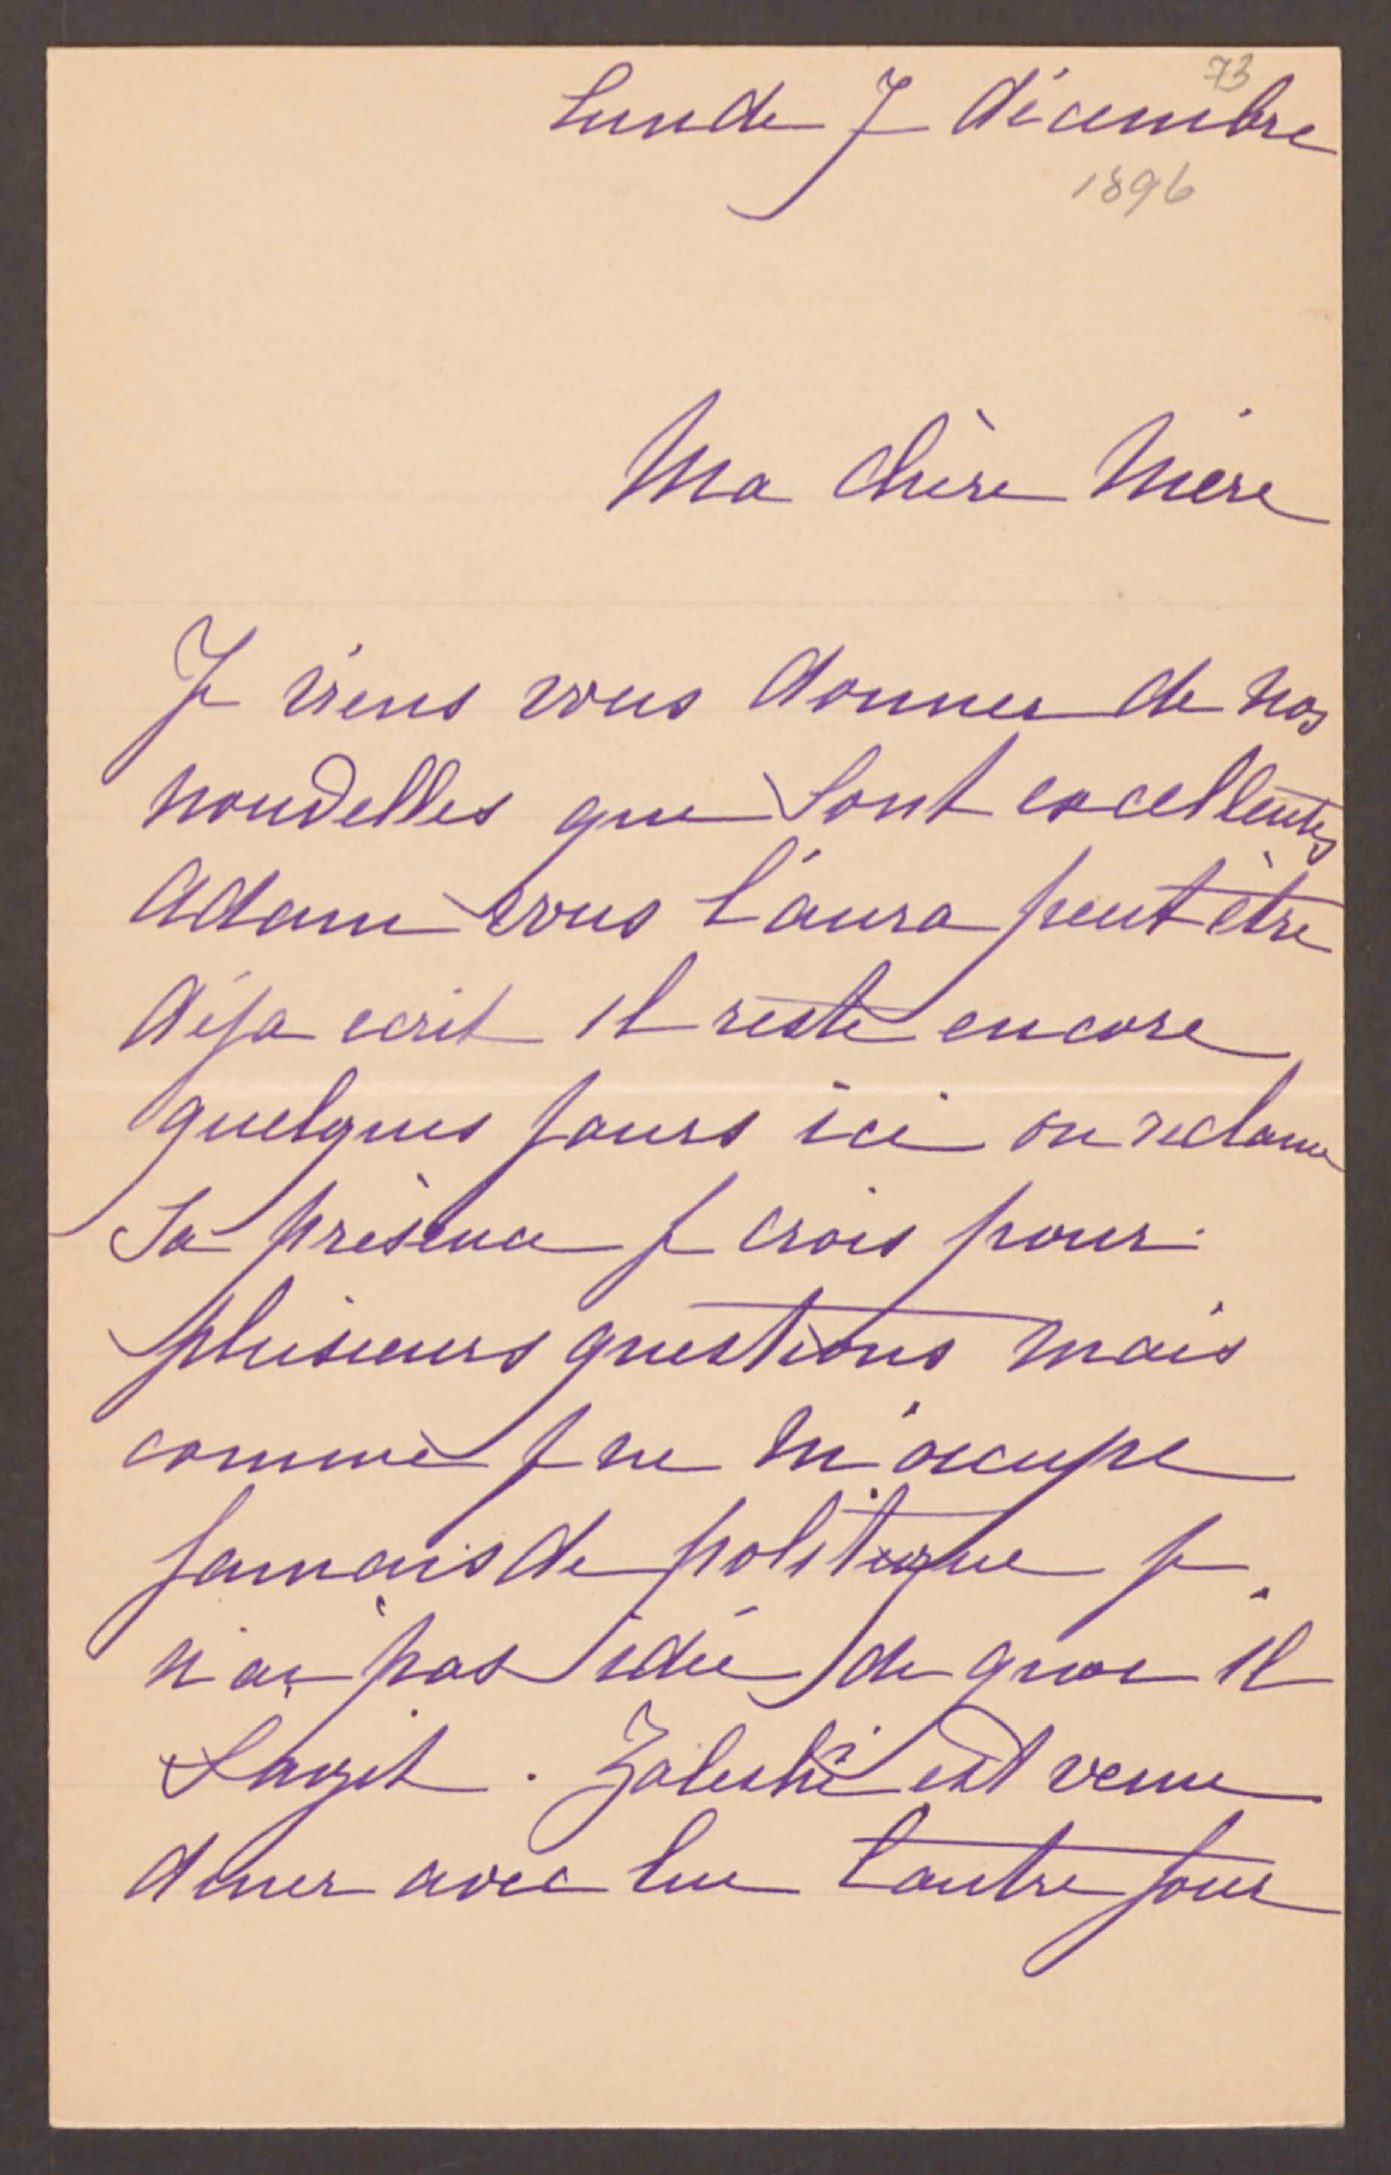 73
Lundi 7 décembre
1896
Ma chère Mère
Je viens vous donner de nos
nouvelles qui sont excellentes
Adam vous l'aura peut être
déja ecrit il reste encore
quelques jours ici on reclame
Sa présence je crois pour
plusieurs questions mais
comme je ne m'occupe
jamais de politique je
n'ai pas idée de quoi il
s'agit. Zaleski est venu
diner avec lui l'autre jour